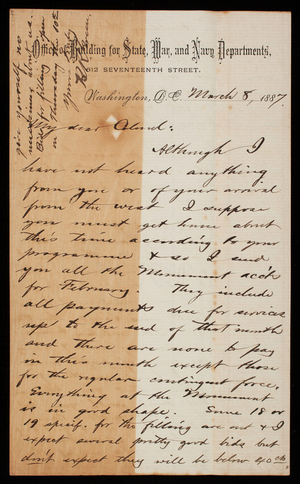 Office of Building for State, War, and Navy Departments,
312 SEVENTEENTH STREET.
Washington, D.C. March 8, 1887.
My dear Cloud:
Although I
have not heard anything
from you or of your arrival
from the west I suppose
you must get home about
this time according to your
programme & so I send
you all the Monument acc'ts
for February. They include
all payments due for services
up to the end of that month
and there are none to pay
in this month except those
for the regular contingent force.
Everything at the Monument
is in good shape. Some 18 or
19 specif. for the filling are out & I
expect several pretty good bids but
don't expect they will be below 40 cts.
give yourself no
uneasiness about us.
Bids for filling open
on Thursday
Yours truly